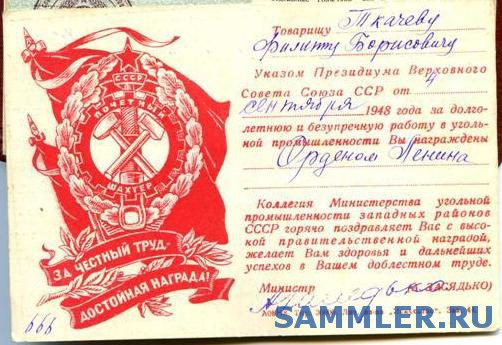 СССР
ПОЧЕТНЫЙ
ШАХТЕР
ЗА ЧЕСТНЫЙ ТРУД-
ДОСТОЙНАЯ НАГРАДА!
666
Товарищу Ткачеву
Филиппу Борисовичу
Указом Президиума Верховного
Совета Союза ССР от 4
сентября 1948 года за долго-
летнюю и безупречную работу в уголь-
ной промышленности Вы награждены
Орденом Ленина
Коллегия Министерства угольной
промышленности западных районов
СССР горячо поздравляет Вас с высо-
кой правительственной наградой,
желает Вам здоровья и дальнейших
успехов в Вашем доблестном труде.
Министр (ЗАСЯДЬКО)
SAMMLER.RU